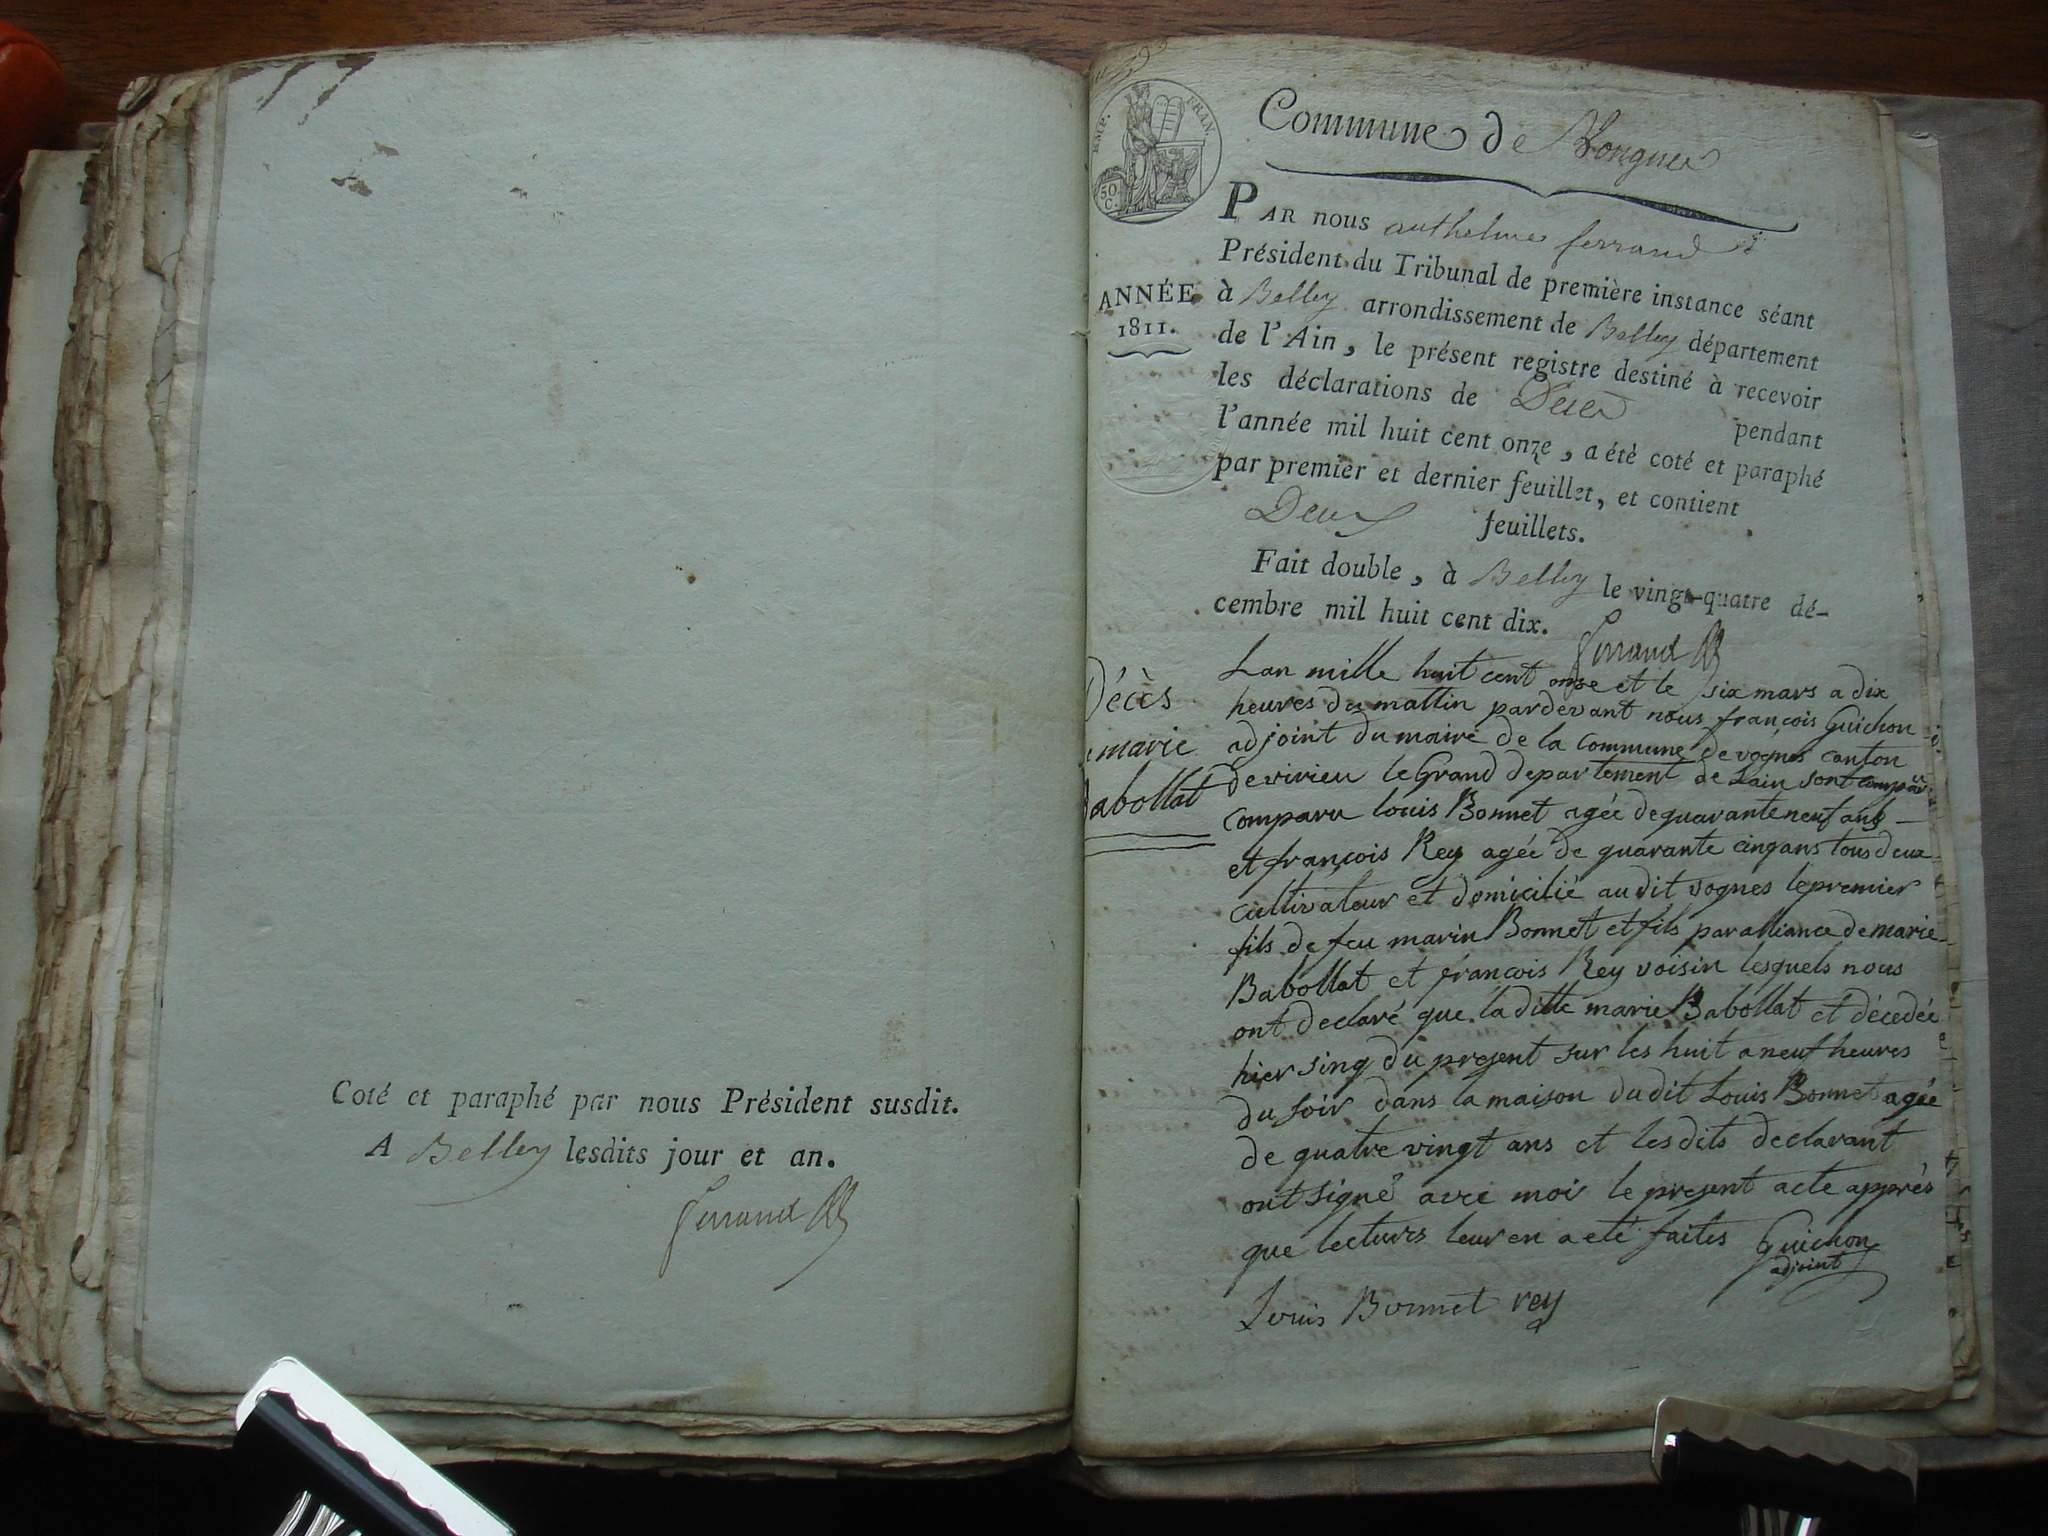 Coté et paraphé par nous Président susdit.
A Belley lesdits jour et an.
ferrand
EMP. FRAN.
50
C.
Commune de Vongnes
PAR nous anthelme ferrand
Président du Tribunal de première instance séant
à Belley arrondissement de Belley département
de l'Ain, le présent registre destiné à recevoir
les déclarations de Deces pendant
l'année mil huit cent onze, a été coté et paraphé
par premier et dernier feuillet, et contient
Deux feuillets.
Fait double, à Belley le vingt-quatre dé-
cembre mil huit cent dix.
ferrand
ANNÉE
1811.
Décès
marie
Babollat
Lan mille huit cent onse et le six mars a dix
heures du mattin pardevant nous françois Guichon
adjoint du maire de la commune de vognes canton
de virieu le Grand departement de Lain sont
comparu louis Bonnet agée de quarante neuf ans
et françois Rey agée de quarante cinq ans tous deux
cultivateur et domicilié au dit vognes le premier
fils de feu marin Bonnet et fils par alliance de marie
Babollat et françois Rey voisin lesquels nous
ont declaré que la ditte marie Babollat et décedée
hier sinq du present sur les huit a neuf heures
du soir dans la maison du dit Louis Bonnet agée
de quatre vingt ans et les dits declarant
ont signé avec moi le present acte apprés
que lectures leur en a eté faites Guichon
adjoint
Louis Bonnet rey